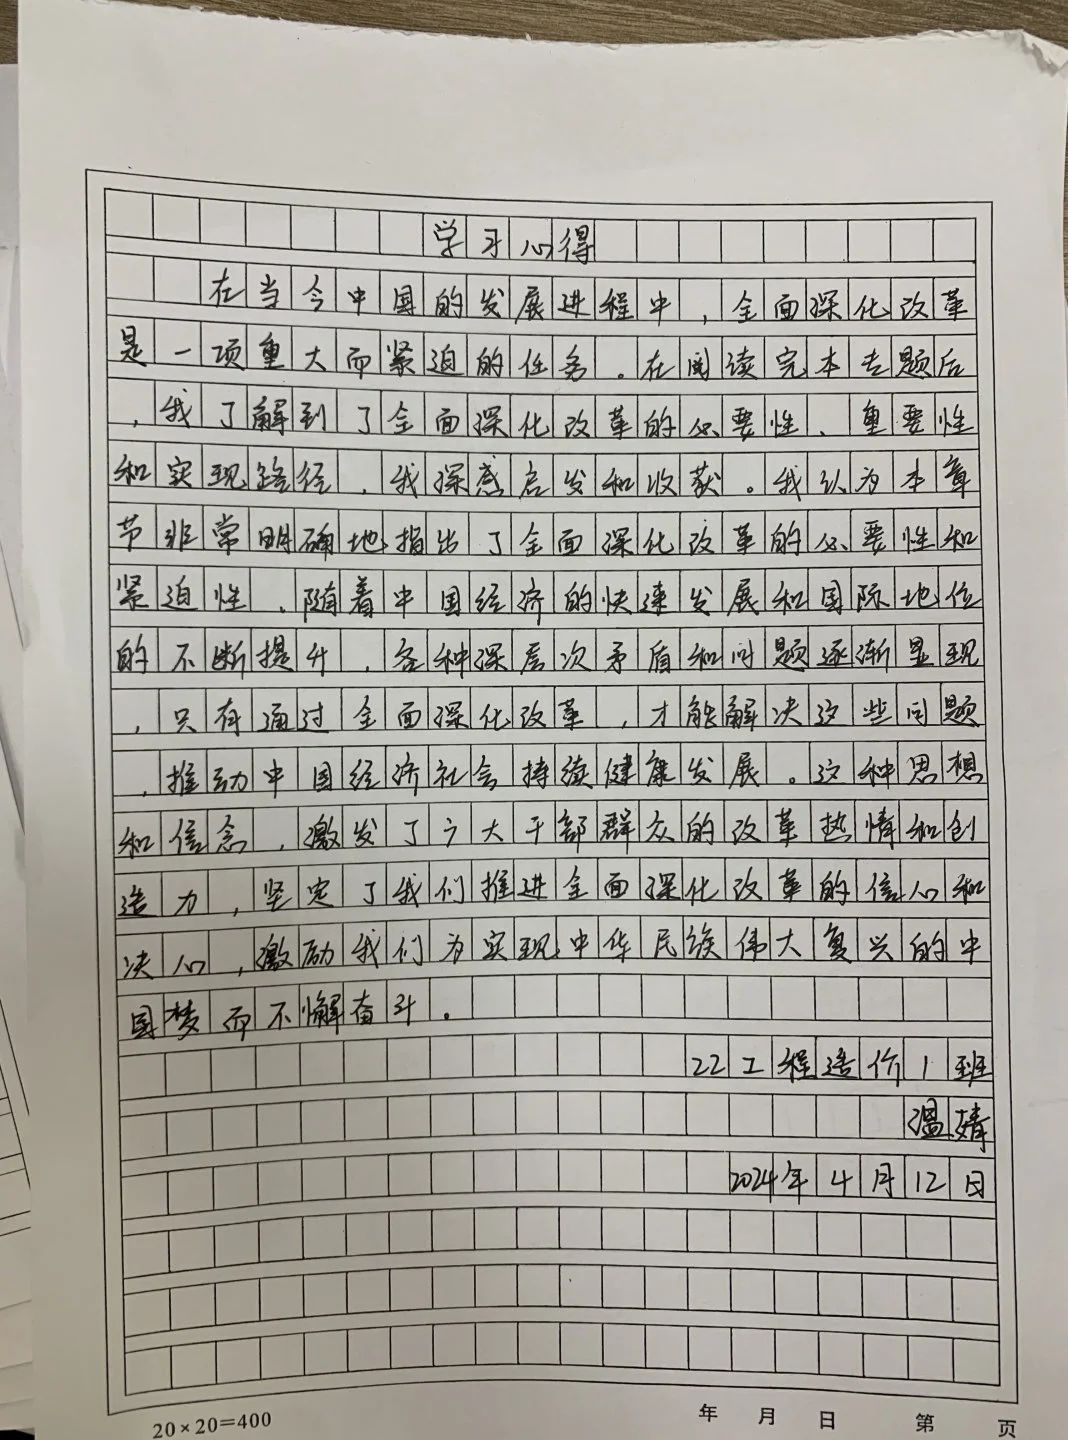 学习心得
在当今中国的发展进程中，全面深化改革
是一项重大而紧迫的任务。在阅读完本专题后
，我了解到了全面深化改革的必要性、重要性
和实现路径，我深感启发和收获。我认为本章
节非常明确地指出了全面深化改革的必要性和
紧迫性，随着中国经济的快速发展和国际地位
的不断提升，各种深层次矛盾和问题逐渐显现
，只有通过全面深化改革，才能解决这些问题
，推动中国经济社会持续健康发展。这种思想
和信念，激发了广大干部群众的改革热情和创
造力，坚定了我们推进全面深化改革的信心和
决心，激励我们为实现中华民族伟大复兴的中
国梦而不懈奋斗。
22工程造价1班
温婧
2024年4月12日
20×20=400 年 月 日 第 页